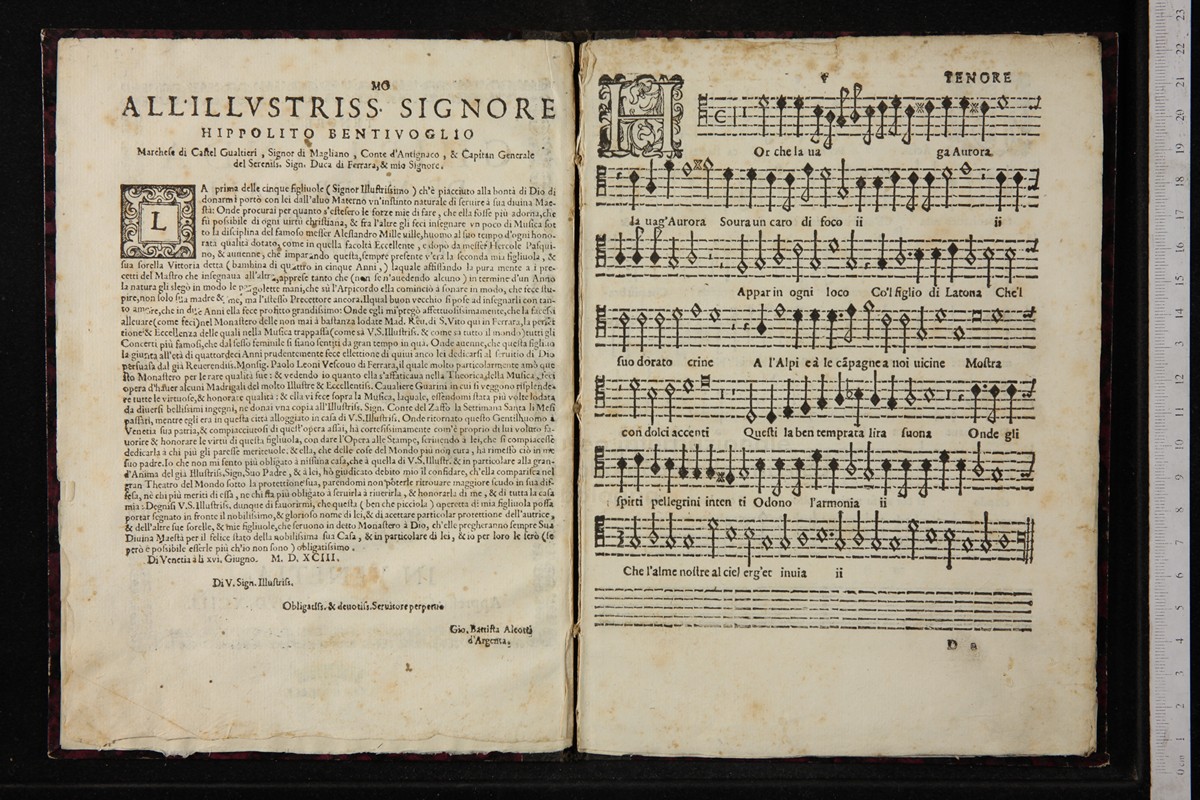 MO
ALL'ILLVSTRISS. SIGNORE
HIPPOLITO BENTIVOGLIO
Marchese di Castel Gualtieri, Signor di Magliano, Conte d'Antignaco, & Capitan Generale
del Serenis. Sign. Duca di Ferrara, & mio Signore.
LA prima delle cinque figliuole (Signor Illustrissimo) ch'è piacciuto alla bontà di Dio di
donarmi portò con lei dall'aluo Materno vn'instinto naturale di seruire à sua diuina Mae-
stà: Onde procurai per quanto s'estesero le forze mie di fare, che ella fosse più adorna, che
fù possibile di ogni uirtù christiana, & fra l'altre gli feci insegnare vn poco di Musica sot
to la disciplina del famoso messer Alessandro Mille uille, huomo al suo tempo d'ogni hono-
rata qualità dotato, come in quella facoltà Eccellente, e dopo da messer Hercole Pasqui-
no, & auuenne, che imparando questa, sempre presente v'era la seconda mia figliuola, &
sua sorella Vittoria detta (bambina di quattro in cinque Anni,) laquale assistando la pura mente a i pre-
cetti del Mastro che insegnaua all'altra, apprese tanto che (non se n'auedendo alcuno) in termine d'un Anno
la natura gli slegò in modo le pargolette mani, che sù l'Arpicordo ella cominciò a sonare in modo, che fece stu-
pire, non solo sua madre & me, ma l'istesso Precettore ancora. Ilqual buon vecchio si pose ad insegnarli con tan-
to amore, che in due Anni ella fece profitto grandissimo: Onde egli mi pregò affettuosissimamente, che la facessi
alleuare (come feci) nel Monastero delle non mai à bastanza lodate Mad. Reu. di S. Vito qui in Ferrara, la perfet
tione & Eccellenza delle quali nella Musica trappassa (come sa V.S. Illustriss. & come sa tutto il mondo) tutti gli
Concerti più famosi, che dal sesso feminile si siano sentiti da gran tempo in quà. Onde auenne, che questa figlia
la giunta all'età di quattordeci Anni prudentemente fece ellettione di quiui anco lei dedicarsi al seruitio di Dio
persuasa dal già Reuerendiss. Monsig. Paolo Leoni Vescouo di Ferrara, il quale molto particolarmente amò que
sto Monastero per le rare qualità sue: & vedendo io quanto ella s'affaticaua nella Theorica, della Musica, feci
opera d'hauer alcuni Madrigali del molto Illustre & Eccellentiss. Caualiere Guarini in cui si veggono risplende-
re tutte le virtuose, & honorate qualità: & ella vi fece sopra la Musica, laquale, essendomi stata più volte lodata
da diuersi bellissimi ingegni, ne donai vna copia all'Illustriss. Sign. Conte del Zaffo la Settimana Santa li Mesi
passati, mentre egli era in questa città alloggiato in casa di V.S. Illustriss. Onde ritornato questo Gentilhuomo à
Venetia sua patria, & compiacciutosi di quest'opera assai, hà cortesissimamente com'è proprio di lui voluto fa-
uorire & honorare le virtù di questa figliuola, con dare l'Opera alle Stampe, scriuendo à lei, che si compiacesse
dedicarla à chi più gli paresse meriteuole, & ella, che delle cose del Mondo più non cura, hà rimesso ciò in me
suo padre. Io che non mi sento più obligato à nissuna casa, che à quella di V.S. Illustr. & in particolare alla gran-
d'Anima del già Illustriss. Sign. Suo Padre, & à lei, hò giudicato debito mio il considare, ch'ella comparisca nel
gran Theatro del Mondo sotto la protettione sua, parendomi non poterle ritrouare maggiore scudo in sua dif-
fesa, nè chi più meriti di essa, ne chi sta più obligato à seruirla à riuerirla, & honorarla di me, & di tutta la casa
mia: Degnisi V.S. Illustriss. dunque di fauorirmi, che questa (ben che picciola) operetta di mia figliuola possa
portar segnato in fronte il nobilissimo, & glorioso nome di lei, & di acettare particolar protettione dell'autrice,
& dell'altre sue sorelle, & mie figliuole, che seruono in detto Monastero à Dio, ch'elle pregheranno sempre Sua
Diuina Maestà per il felice stato della nobilissima sua Casa, & in particolare di lei, & io per loro le serò (se
però è possibile esserle più ch'io non sono) obligatissimo.
Di Venetia à li xvi. Giugno. M. D. XCIII.
Di V. Sign. Illustriss.
Obligatiss. & deuotiss. Seruitore perpetuo
Gio. Battista Aleotti
d'Argenta.
TENORE
Or che la ua ga Aurora
la uag'Aurora Soura un caro di foco ii ii
Appar in ogni loco Co'l figlio di Latona Che'l
suo dorato crine A l'Alpi e à le cãpagne a noi uicine Mostra
con dolci accenti Questi la ben temprata lira suona Onde gli
spirti pellegrini inten ti Odono l'armonia ii
Che l'alme nostre al ciel erg'et inuia ii